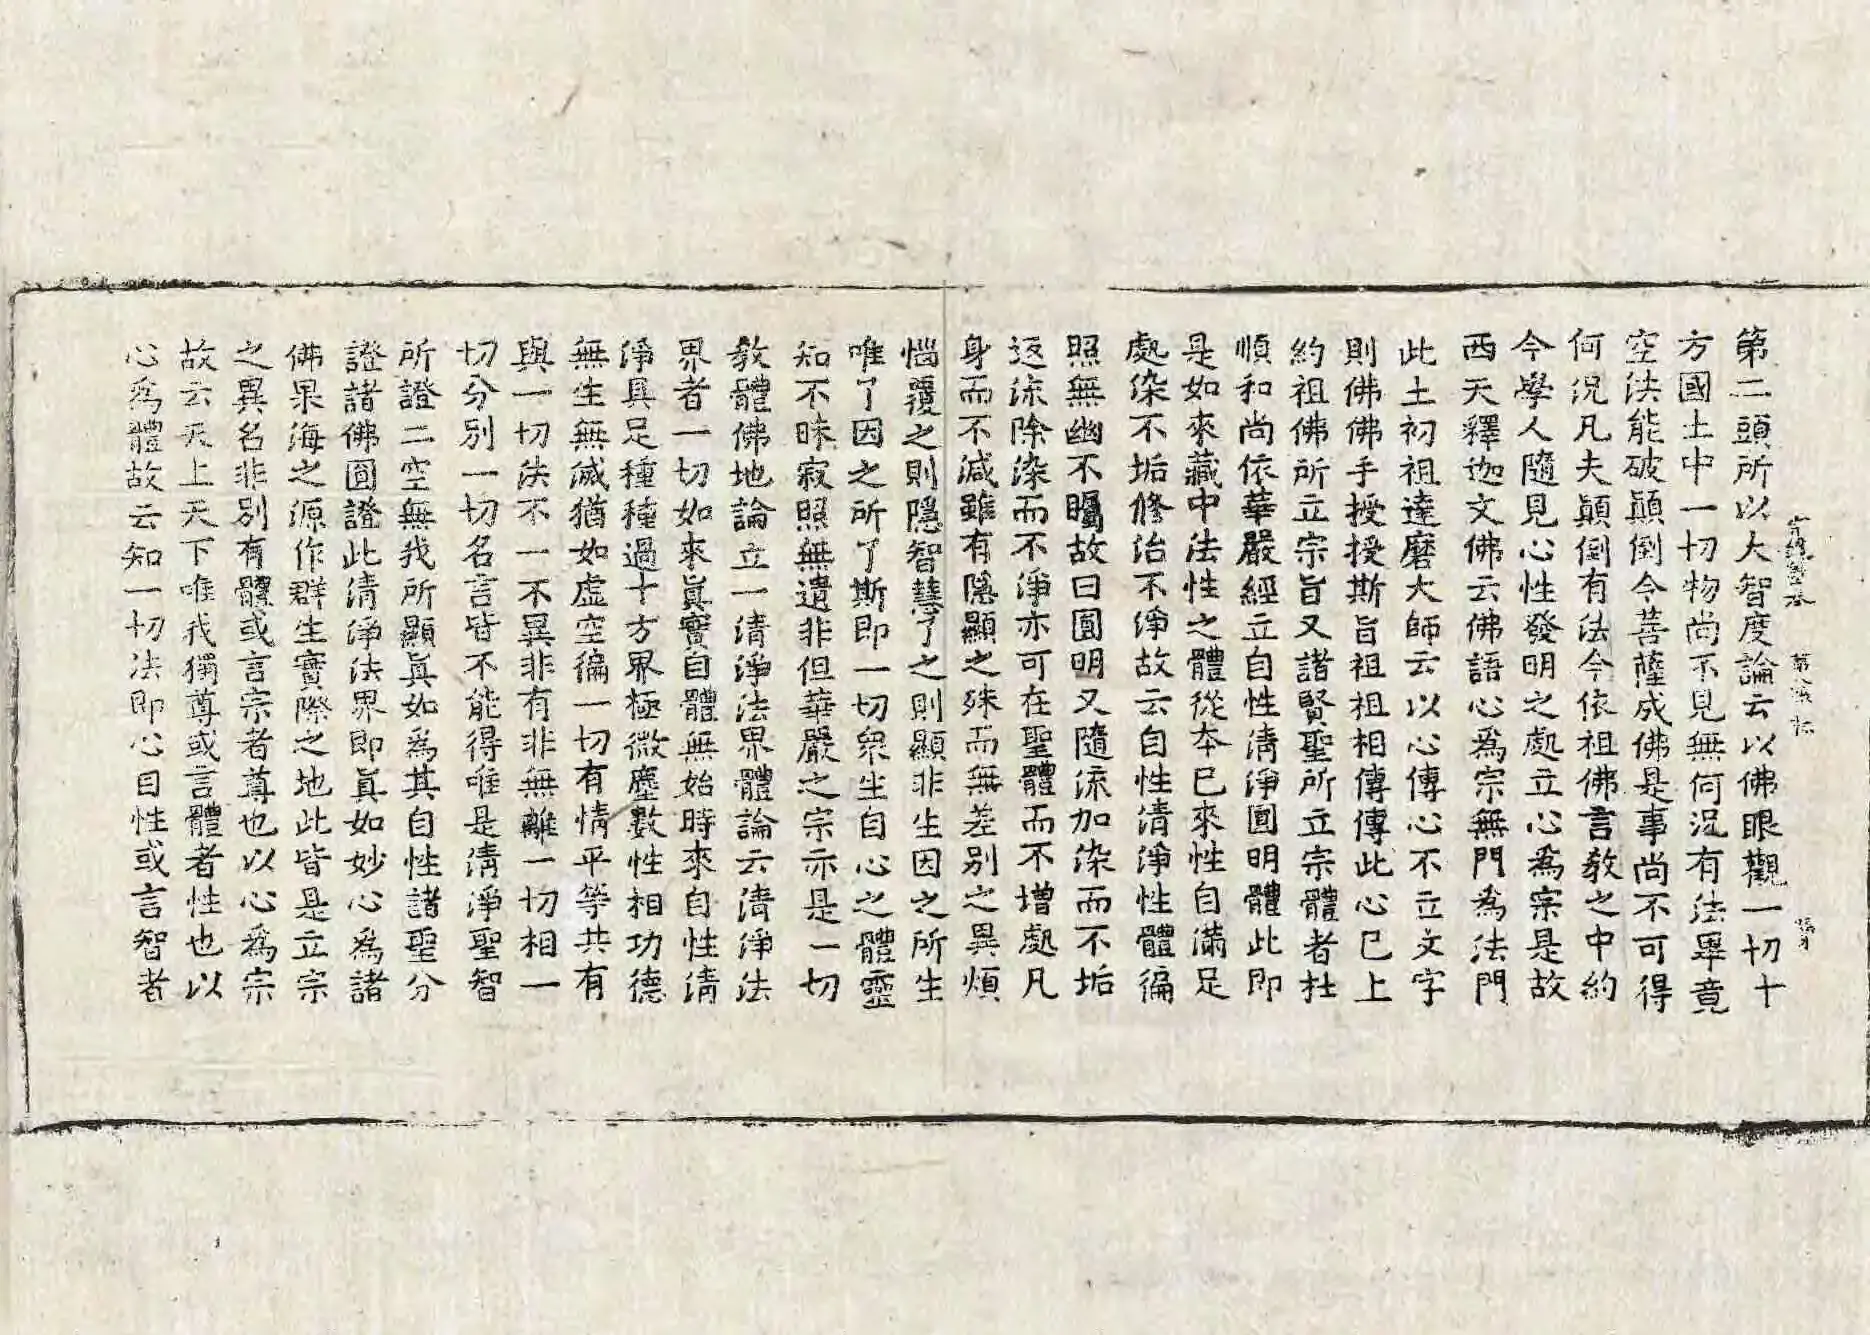 第二頭所以大智度論云以佛眼觀一切十
方國土中一切物尚不見無何況有法畢竟
空法能破顛倒令菩薩成佛是事尚不可得
何況凡夫顛倒有法今依祖佛言教之中約
今學人隨見心性發明之處立心爲宗是故
西天釋迦文佛云佛語心爲宗無門爲法門
此土初祖達磨大師云以心傳心不立文字
則佛佛手授授斯旨祖祖相傳傳此心已上
約祖佛所立宗旨又諸賢聖所立宗體者杜
順和尚依華嚴經立自性清淨圓明體此即
是如來藏中法性之體從本已來性自滿足
處染不垢修治不淨故云自性清淨性體徧
照無幽不矚故曰圓明又隨流加染而不垢
返流除染而不淨亦可在聖體而不增處凡
身而不減雖有隱顯之殊而無差別之異煩
惱覆之則隱智慧了之則顯非生因之所生
唯了因之所了斯即一切衆生自心之體靈
知不昧寂照無遺非但華嚴之宗亦是一切
教體佛地論立一清淨法界體論云清淨法
界者一切如來眞實自體無始時來自性清
淨具足種種過十方界極微塵數性相功德
無生無滅猶如虛空徧一切有情平等共有
與一切法不一不異非有非無離一切相一
切分別一切名言皆不能得唯是清淨聖智
所證二空無我所顯眞如爲其自性諸聖分
證諸佛圓證此清淨法界即眞如妙心爲諸
佛果海之源作群生實際之地此皆是立宗
之異名非別有體或言宗者尊也以心爲宗
故云天上天下唯我獨尊或言體者性也以
心爲體故云知一切法即心自性或言智者